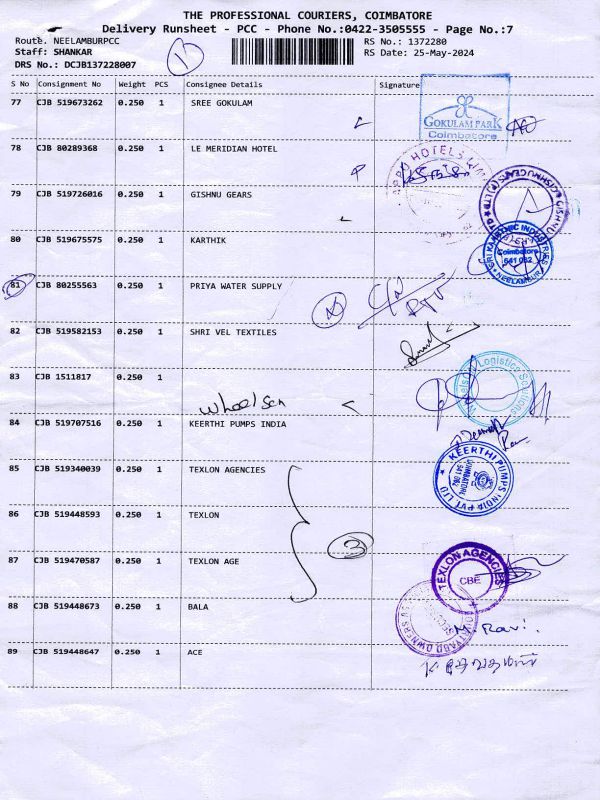 THE PROFESSIONAL COURIERS, COIMBATORE
Delivery Runsheet - PCC - Phone No.:0422-3505555 - Page No.:7
Route. NEELAMBURPCC RS No.: 1372280
Staff: SHANKAR RS Date: 25-May-2024
DRS No.: DCJB137228007
S No Consignment No Weight PCS Consignee Details Signature
77 CJB 519673262 0.250 1 SREE GOKULAM
GOKULAM PARK
Coimbatore
78 CJB 80289368 0.250 1 LE MERIDIAN HOTEL
79 CJB 519726016 0.250 1 GISHNU GEARS
80 CJB 519675575 0.250 1 KARTHIK
Coimbatore
641 062
NEELAMBUR
81 CJB 80255563 0.250 1 PRIYA WATER SUPPLY
82 CJB 519582153 0.250 1 SHRI VEL TEXTILES
83 CJB 1511817 0.250 1
84 CJB 519707516 0.250 1 KEERTHI PUMPS INDIA
KEERTHI PUMPS INDIA PVT. LTD
85 CJB 519340039 0.250 1 TEXLON AGENCIES
86 CJB 519448593 0.250 1 TEXLON
3
87 CJB 519470587 0.250 1 TEXLON AGE
TEXLON AGENCIES
CBE
88 CJB 519448673 0.250 1 BALA
M. Ravi.
89 CJB 519448647 0.250 1 ACE